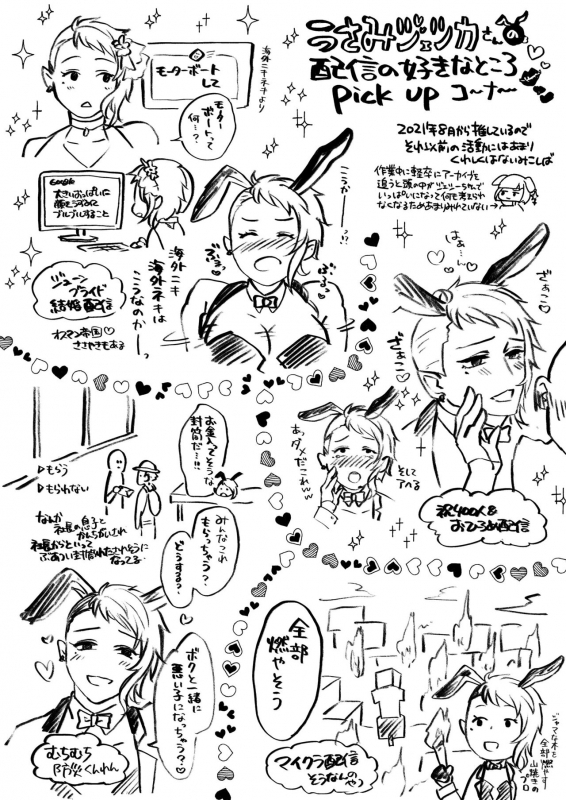 うさみジェツカさんの
配信の好きなところ
Pick up コ〜ナ〜
2021年8月から推しているので
それ以前の活動にはあまり
くわしくはないみこしば
作業中に軽卒にアーカイブを
追うと頭の中がジェツーちゃんで
いっぱいになって何も考えられ
なくなるためあまりみれていない→
海外ニキネキより
モーターボート
して
モーター
ボートって
何…?
Google
大きいおっぱいに
顔をうずめて
ブルブルすること
こうかーっ!?
ぶるっ
ぶるっ
海外ニキ
海外ネキは
こうなのかーっ
ジューン
ブライド
結婚配信
オスマン帝国♡
ささやきもある
はぁ…♡
ざぁこ♡
ざぁこ♡
あ、ダメだこれww
そして
アヘる
祝400人&
おひろめ配信
▷もらう
▷もらわない
お金入ってそうな
封筒だ…!!
なんか
社長の息子と
かんちがいされ
社長からといって
ぶあつい封筒わたされそうに
なってる…
みんなこれ
もらっちゃう?
どうする?
ボクと一緒に
悪い子になっちゃう?♡
むちむち
防災くんれん
全部
燃やそう
マイクラ配信
そうなんのやつ
ジャマな木を
全部燃やす
山焼きの
プロ